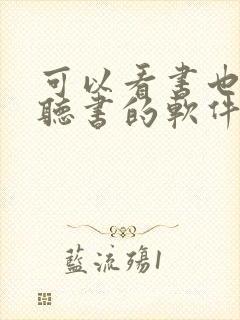 可以看書也
聽書的軟件
藍流殤1